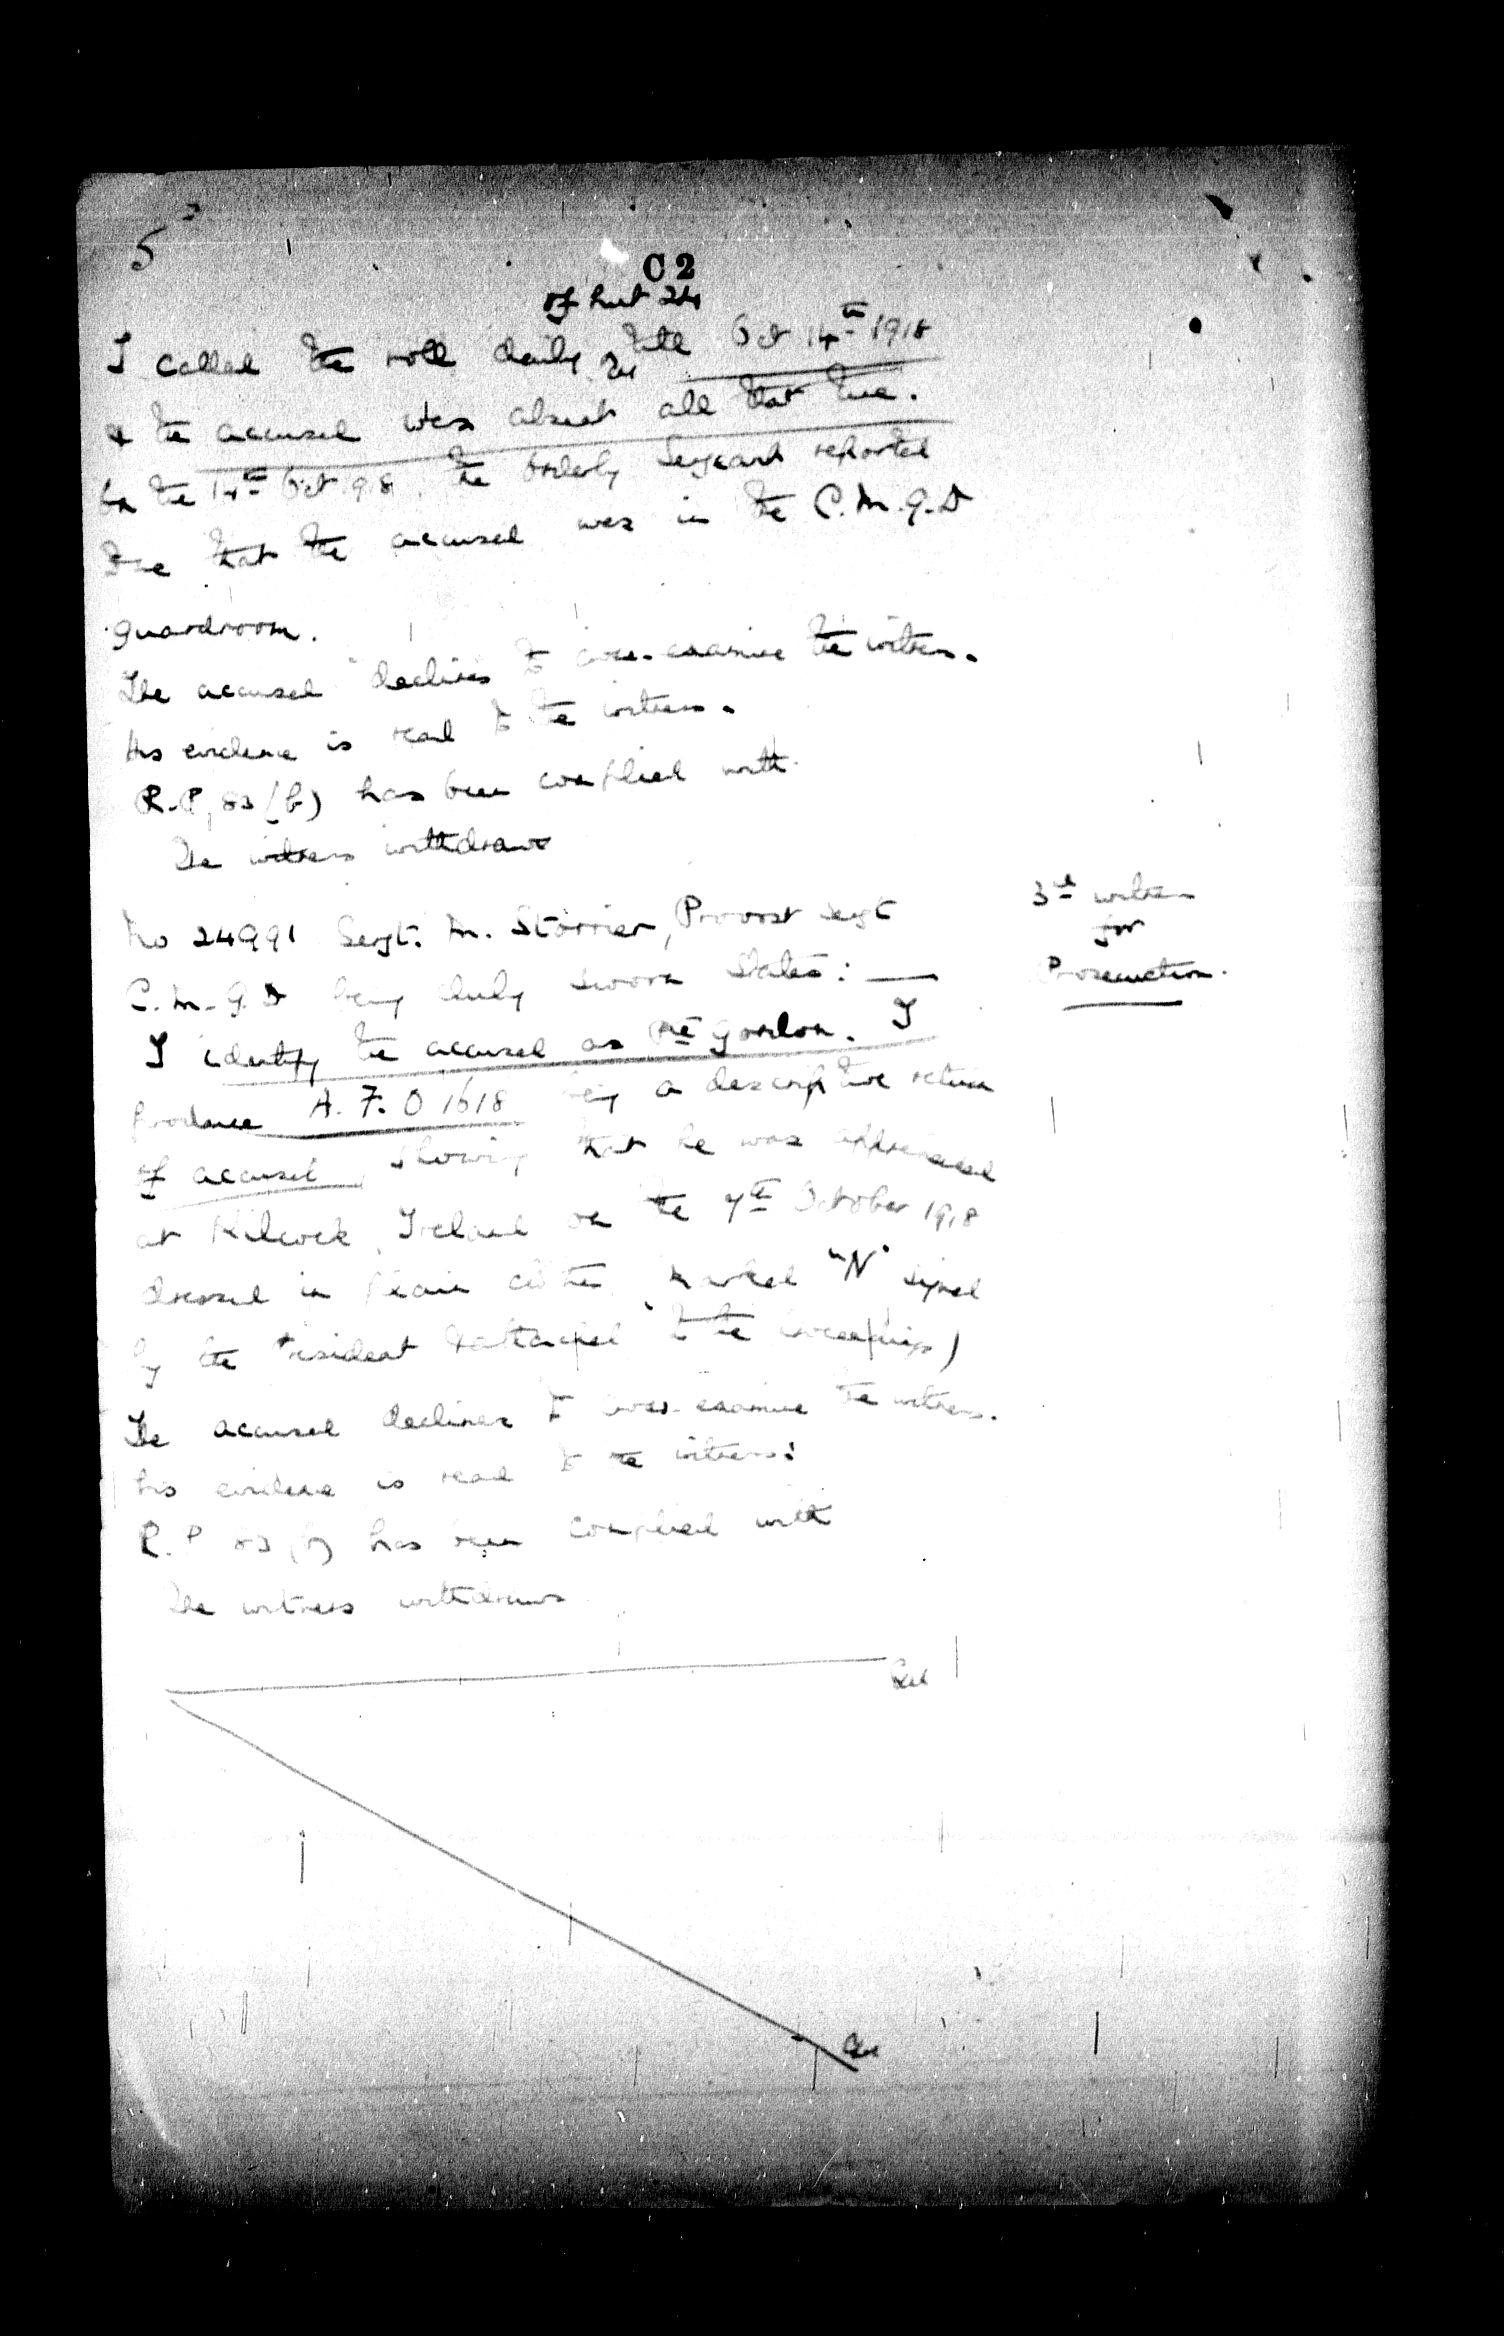 5
C 2
of hut 24
I called the roll daily till Oct 14th 1918
& the accused was absent all that time.
On the 14th Oct 1918 the Orderly Sergeant reported
to me that the accused was in the C.M.G.D
guardroom.
The accused declines to cross-examine the witness.
His evidence is read to the witness.
R.P. 83 (b) has been complied with.
The witness withdraws
No 24991 Sergt. M. Storrier, Provost Sergt
3rd witness
for
Prosecution.
C.M.G.D being duly sworn states: —
I identify the accused as Pte Gordon. I
produce A. F. O 1618 being a descriptive return
of accused, showing that he was apprehended
at Kilcock, Ireland on the 7th October 1918
dressed in plain clothes, marked "N" signed
by the President & attached to the proceedings)
The accused declines to cross-examine the witness.
His evidence is read to the witness:
R.P 83 (b) has been complied with
The witness withdraws